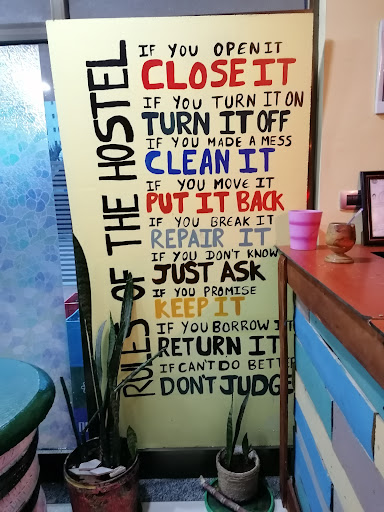 RULES OF THE HOSTEL
IF YOU OPEN IT
CLOSE IT
IF YOU TURN IT ON
TURN IT OFF
IF YOU MADE A MESS
CLEAN IT
IF YOU MOVE IT
PUT IT BACK
IF YOU BREAK IT
REPAIR IT
IF YOU DON'T KNOW
JUST ASK
IF YOU PROMISE
KEEP IT
IF YOU BORROW IT
RETURN IT
IF CAN'T DO BETTER
DON'T JUDGE